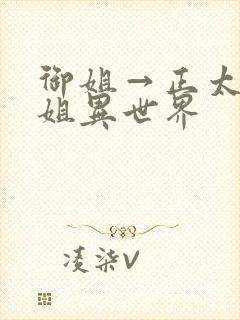 御姐→正太
姐異世界
凌柒V